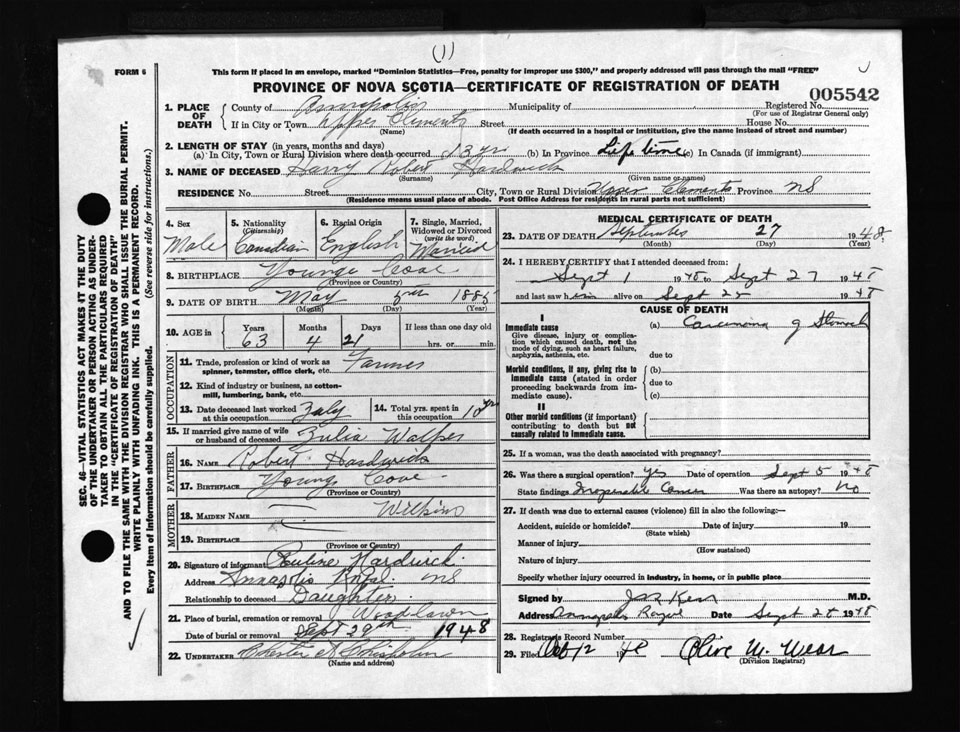 (1)
FORM 6
This form if placed in an envelope, marked "Dominion Statistics—Free, penalty for improper use $300," and properly addressed will pass through the mail "FREE"
PROVINCE OF NOVA SCOTIA—CERTIFICATE OF REGISTRATION OF DEATH
005542
1. PLACE OF DEATH County of Annapolis Municipality of Registered No. (For use of Registrar General only)
If in City or Town Upper Clements Street House No.
(Name) (If death occurred in a hospital or institution, give the name instead of street and number)
2. LENGTH OF STAY (in years, months and days)
(a) In City, Town or Rural Division where death occurred 13 yrs (b) In Province Life time (c) In Canada (if immigrant)
3. NAME OF DECEASED Harry Robert Hardwick
(Surname) (Given name or names)
RESIDENCE No. Street City, Town or Rural Division Upper Clements Province NS
(Residence means usual place of abode. Post Office Address for residents in rural parts not sufficient)
4. Sex Male
5. Nationality (Citizenship) Canadian
6. Racial Origin English
7. Single, Married, Widowed or Divorced (write the word) Married
8. BIRTHPLACE Youngs Cove
(Province or Country)
9. DATE OF BIRTH May 5th 1885
(Month) (Day) (Year)
10. AGE in Years 63 Months 4 Days 21 If less than one day old hrs. or min.
OCCUPATION
11. Trade, profession or kind of work as spinner, teamster, office clerk, etc. Farmer
12. Kind of industry or business, as cotton-mill, lumbering, bank, etc.
13. Date deceased last worked at this occupation July
14. Total yrs. spent in this occupation 10 yrs
15. If married give name of wife or husband of deceased Julia Walker
FATHER
16. NAME Robert Hardwick
17. BIRTHPLACE Youngs Cove
(Province or Country)
MOTHER
18. MAIDEN NAME Wilkins
19. BIRTHPLACE
(Province or Country)
20. Signature of informant Pauline Hardwick
Address Annapolis Royal NS
Relationship to deceased Daughter
21. Place of burial, cremation or removal Woodlawn
Date of burial or removal Sept 29th 1948
22. UNDERTAKER Chester A Chisholm
(Name and address)
MEDICAL CERTIFICATE OF DEATH
23. DATE OF DEATH September 27 1948
(Month) (Day) (Year)
24. I HEREBY CERTIFY that I attended deceased from:
Sept 1 1948 to Sept 27 1948
and last saw him alive on Sept 1948
CAUSE OF DEATH
I
Immediate cause (a) Carcinoma of Stomach
Give disease, injury or complication which caused death, not the mode of dying, such as heart failure, asphyxia, asthenia, etc. due to
Morbid conditions, if any, giving rise to immediate cause (stated in order proceeding backwards from immediate cause). (b) due to (c)
II
Other morbid conditions (if important) contributing to death but not causally related to immediate cause.
25. If a woman, was the death associated with pregnancy?
26. Was there a surgical operation? yes Date of operation Sept 5 1948
State findings Inoperable Cancer Was there an autopsy? No
27. If death was due to external causes (violence) fill in also the following:—
Accident, suicide or homicide? Date of injury 19
(State which)
Manner of injury
(How sustained)
Nature of injury
Specify whether injury occurred in industry, in home, or in public place
Signed by Kerr M.D.
Address Annapolis Royal Date Sept 28 1948
28. Registrars Record Number
29. Filed Oct 12 1948 Olive M. Wear
(Division Registrar)
SEC. 46—VITAL STATISTICS ACT MAKES IT THE DUTY
OF THE UNDERTAKER OR PERSON ACTING AS UNDER-
TAKER TO OBTAIN ALL THE PARTICULARS REQUIRED
IN THE "CERTIFICATE OF REGISTRATION OF DEATH"
AND TO FILE THE SAME WITH THE DIVISION REGISTRAR WHO SHALL ISSUE THE BURIAL PERMIT.
WRITE PLAINLY WITH UNFADING INK. THIS IS A PERMANENT RECORD.
Every item of information should be carefully supplied. (See reverse side for instructions.)